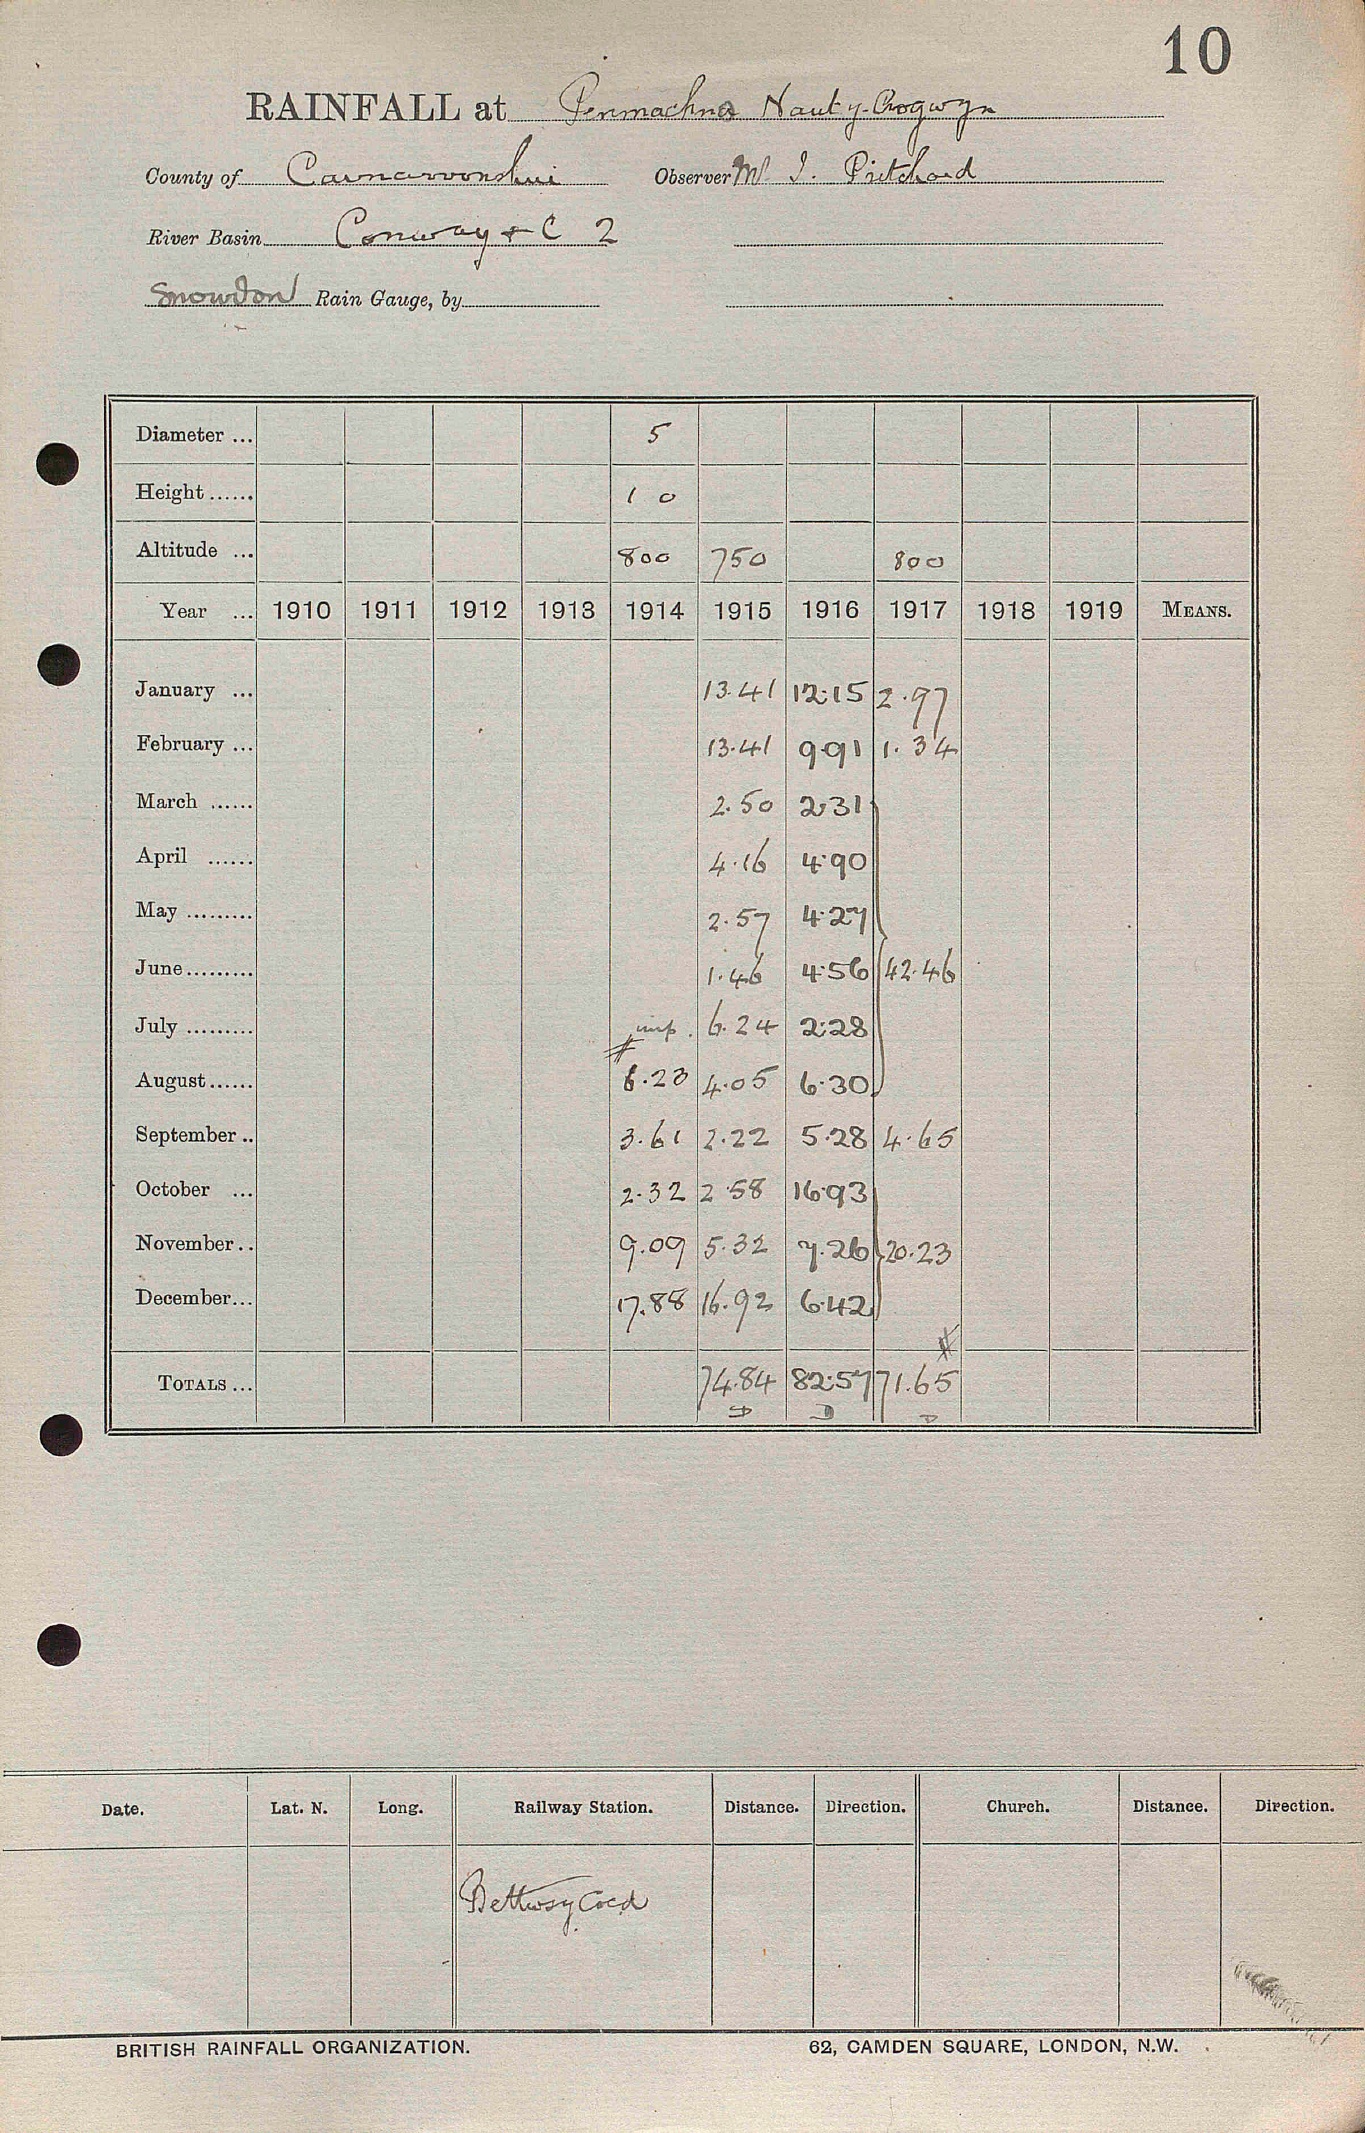 10
RAINFALL at Penmachno Nant-y-Crogwyn
County of Carnarvonshire Observer Mr. J. Pritchard
River Basin Conway & C 2
Snowdon Rain Gauge, by
Diameter ... 5
Height ...... 1 0
Altitude ... 800 750 800
Year ... 1910 1911 1912 1913 1914 1915 1916 1917 1918 1919 MEANS.
January ... 13.41 12.15 2.97
February ... 13.41 9.91 1.34
March ...... 2.50 2.31
April ...... 4.16 4.90
May ......... 2.57 4.27
June ......... 1.46 4.56 42.46
July ......... imp. 6.24 2.28
August ...... 6.23 4.05 6.30
September .. 3.61 2.22 5.28 4.65
October ... 2.32 2.58 16.93
November .. 9.09 5.32 7.26 20.23
December ... 17.88 16.92 6.42
#
TOTALS ... 74.84 82.57 71.65
D D D
Date. Lat. N. Long. Railway Station. Distance. Direction. Church. Distance. Direction.
Bettwsy Coed
BRITISH RAINFALL ORGANIZATION. 62, CAMDEN SQUARE, LONDON, N.W.